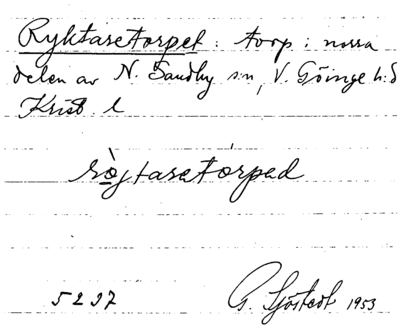 Ryktaretorpet : torp i norra
delen av N. Sandby sn, V. Göinge h:d
Krist. l
ròjtaratórpad
5297 G. Sjöstedt 1953